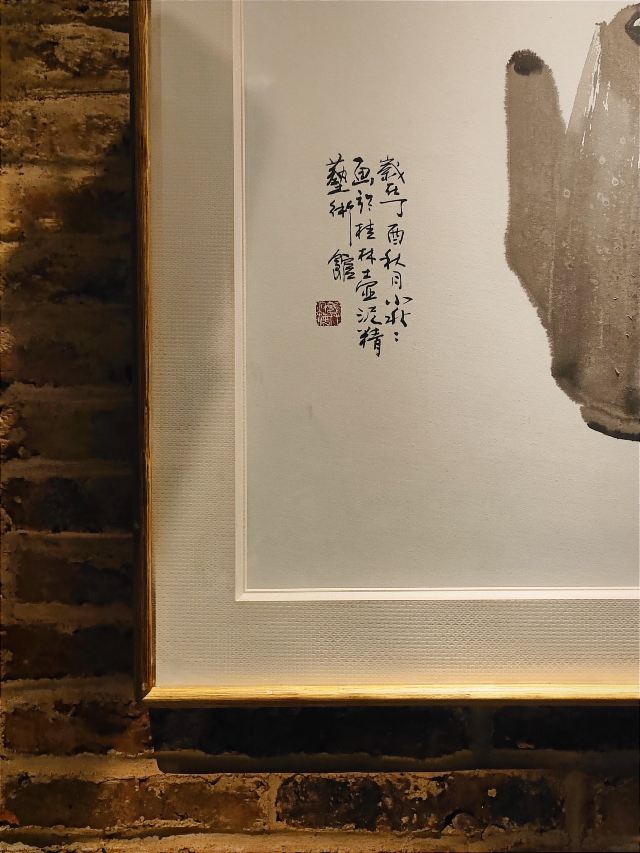 歲在丁酉秋月小
画於桂林壺泥精
藝術館